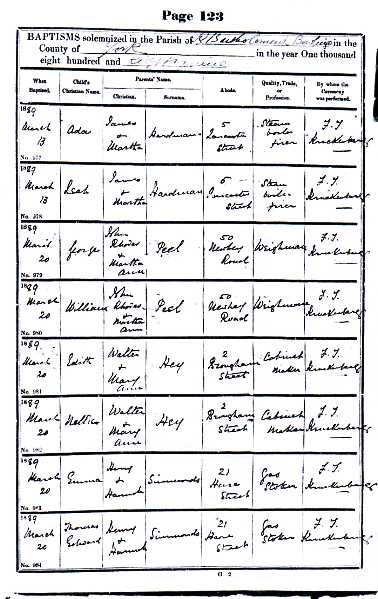 Page 123
BAPTISMS solemnized in the Parish of St Bartholomew Bowling in the
County of York in the year One thousand
eight hundred and eighty nine
When Baptized. Child's Christian Name. Parents' Name. Abode. Quality, Trade, or Profession. By whom the Ceremony was performed.
Christian. Surname.
1889 March 13 Ada James & Martha Hardman 5 Street Steam boiler firer F. J.
No. 977
1889 March 13 Leah James & Martha Hardman 5 Street Steam boiler firer F. J.
No. 978
1889 March 20 George John Rhodes & Martha Ann Peel 50 Road Weighman F. J.
No. 979
1889 March 20 William John Rhodes & Martha Ann Peel 50 Road Weighman F. J.
No. 980
1889 March 20 Edith Walter & Mary Ann Hey 2 Brougham Street Cabinet Maker F. J.
No. 981
1889 March 20 Walter & Mary Ann Hey 2 Brougham Street Cabinet Maker F. J.
No. 982
1889 March 20 Emma Henry & Hannah Simmonds 21 Hare Street Gas Stoker F. J.
No. 983
1889 March 20 Thomas Edward Henry & Hannah Simmonds 21 Hare Street Gas Stoker F. J.
No. 984
G 2